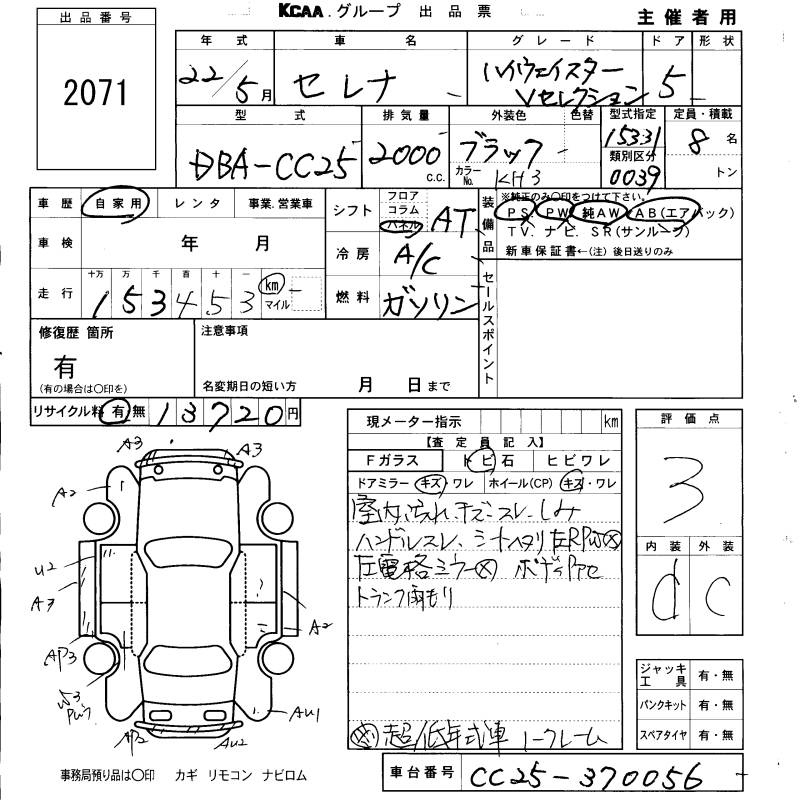 KCAA.グループ 出品票
主催者用
出品番号
2071
年式 車名 グレード ドア 形状
22/5月 セレナ ハイウェイスター Vセレクション 5
型式 排気量 外装色 色替 型式指定 定員・積載
DBA-CC25 2000 c.c. ブラック 15331 8名
カラーNo. KH3 類別区分 0039 トン
車歴 自家用 レンタ 事業.営業車
シフト フロア コラム パネル AT
装備品 ※純正のみ○印をつけて下さい。
PS. PW 純AW AB(エアバック)
TV. ナビ. SR(サンルーフ)
新車保証書←(注) 後日送りのみ
車検 年 月
冷房 A/C
走行 十万 万 千 百 十 一
153453 km マイル
燃料 ガソリン
セールスポイント
修復歴 箇所
有
(有の場合は○印を)
注意事項
名変期日の短い方 月 日まで
リサイクル料 有 無 13720円
現メーター指示 km
【査定員記入】
Fガラス トビ石 ヒビワレ
ドアミラー キズ・ワレ ホイール(CP) キズ・ワレ
室内汚れ、キズ、スレ、しみ
ハンドルスレ、シートヘタリ 左RPW㊋
左電格ミラー
トランク雨もり
超/低年式車 ノークレーム
評価点
3
内装 外装
d C
A3 A3
A2
U2
A3
A2
AP3
W3
AU1
AP2 AU2
ジャッキ 工具 有・無
パンクキット 有・無
スペアタイヤ 有・無
事務局預り品は○印 カギ リモコン ナビロム
車台番号 CC25-370056